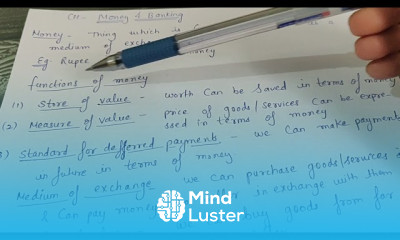 CH- Money & Banking
Money - Thing which is
medium of exchan money
Eg. Rupee
functions of money
(1) Store of value - worth Can be Saved in terms of money
(2) Measure of value - price of goods/services Can be expre-
ssed in terms of money
) Standard for defferred payments - we Can make payment
in future in terms of money
Medium of exchange we Can purchase goods/services
& Can pay money in exchange with them
goods from far
Mind
Luster